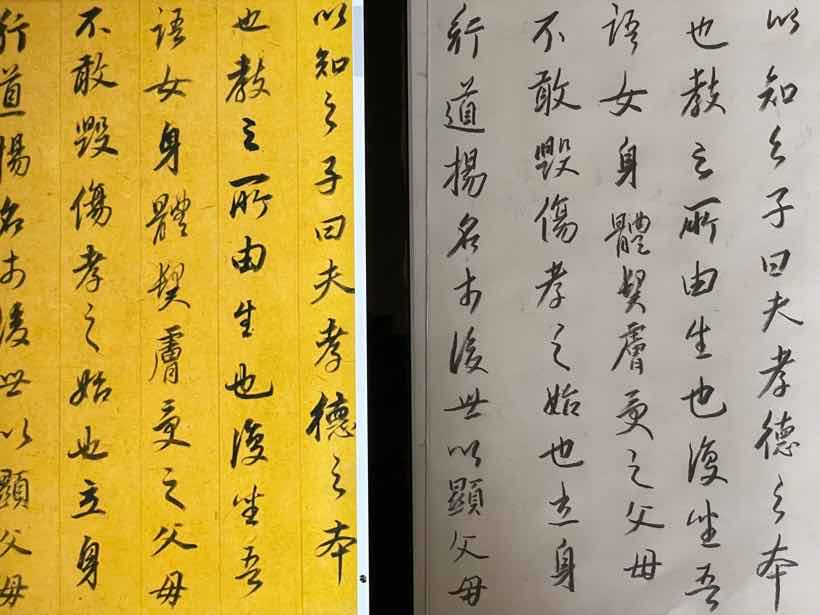 以知之子曰夫孝德之本
也教之所由生也復坐吾
語女身體髮膚受之父母
不敢毀傷孝之始也立身
行道揚名於後世以顯父母
以知之子曰夫孝德之本
也教之所由生也復坐吾
語女身體髮膚受之父母
不敢毀傷孝之始也立身
行道揚名於後世以顯父母